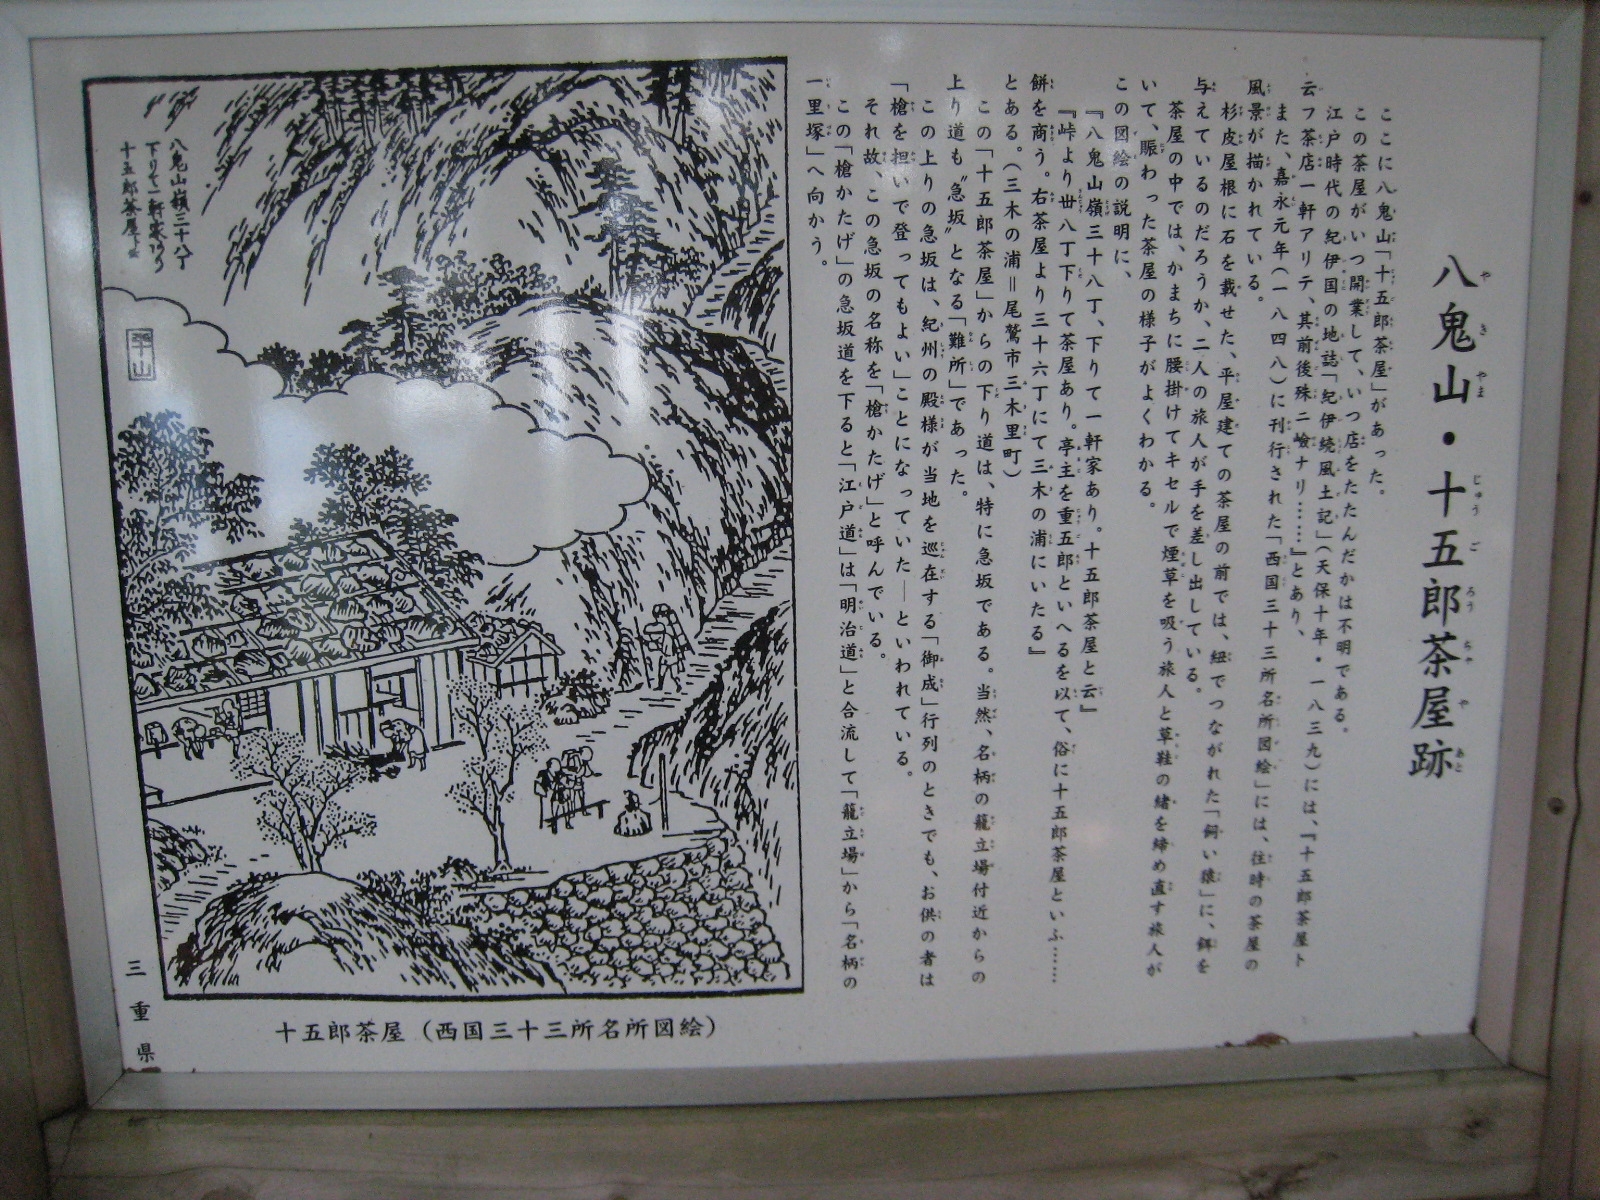 八鬼山・十五郎茶屋跡
ここに八鬼山「十五郎茶屋」があった。
この茶屋がいつ開業して、いつ店をたたんだかは不明である。
江戸時代の紀伊国の地誌「紀伊続風土記」(天保十年・一八三九)には、『十五郎茶屋ト
云フ茶店一軒アリテ、其前後殊ニ嶮ナリ……』とあり、
また、嘉永元年(一八四八)に刊行された「西国三十三所名所図絵」には、往時の茶屋の
風景が描かれている。
杉皮屋根に石を載せた、平屋建ての茶屋の前では、紐でつながれた「飼い猿」に、餌を
与えているのだろうか、二人の旅人が手を差し出している。
茶屋の中では、かまちに腰掛けてキセルで煙草を吸う旅人と草鞋の緒を締め直す旅人が
いて、賑わった茶屋の様子がよくわかる。
この図絵の説明に、
『八鬼山嶺三十八丁、下りて一軒家あり。十五郎茶屋と云』
『峠より丗八丁下りて茶屋あり。亭主を重五郎といへるを以て、俗に十五郎茶屋といふ……
餅を商う。右茶屋より三十六丁にて三木の浦にいたる』
とある。(三木の浦=尾鷲市三木里町)
この「十五郎茶屋」からの下り道は、特に急坂である。当然、名柄の籠立場付近からの
上り道も〝急坂〟となる「難所」であった。
この上りの急坂は、紀州の殿様が当地を巡在する「御成」行列のときでも、お供の者は
「槍を担いで登ってもよい」ことになっていた―といわれている。
それ故、この急坂の名称を「槍かたげ」と呼んでいる。
この「槍かたげ」の急坂道を下ると「江戸道」は「明治道」と合流して「籠立場」から「名柄の
一里塚」へ向かう。
八鬼山嶺三十八丁
下りて一軒家あり
十五郎茶屋と云
平山
十五郎茶屋(西国三十三所名所図絵)
三重県